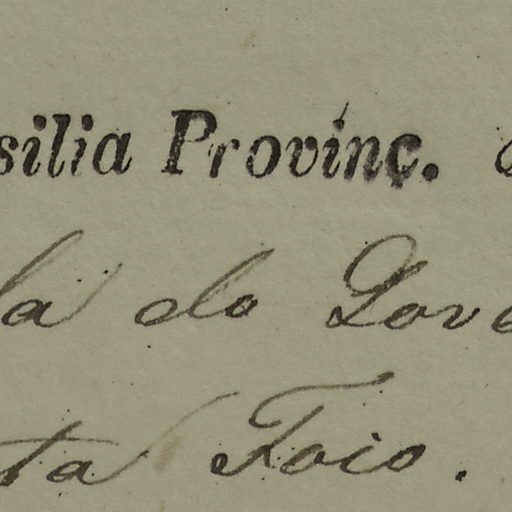 silia Provinç.
la do Lov
ta Foio.